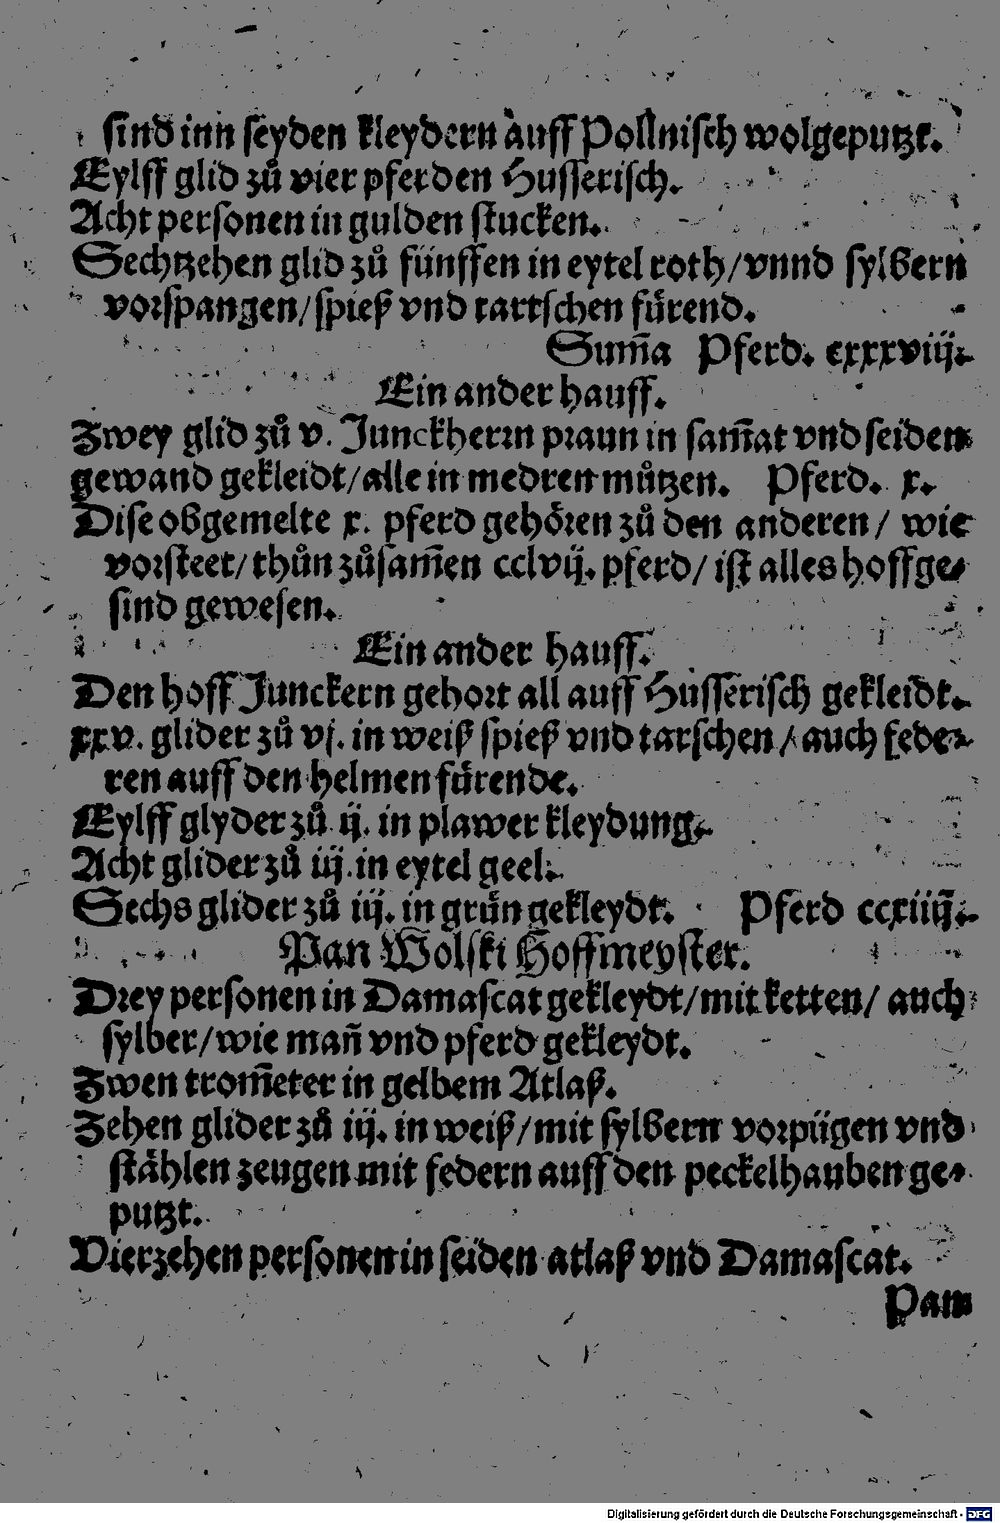 sind inn seyden kleydern auff Pollnisch wolgeputzt.
Eylff glid zů vier pferden Husserisch.
Acht personen in gulden stucken.
Sechtzehen glid zů fünffen in eytel roth/vnnd sylbern
vorspangen/spieß vnd tartschen fürend.
Sum̃a Pferd. cxxxviij.
Ein ander hauff.
Zwey glid zů v. Junckherrn praun in sam̃at vnd seiden
gewand gekleidt/alle in medren mützen. Pferd. x.
Dise obgemelte x. pferd gehören zů den anderen/ wie
vorsteet/thůn zůsam̃en cclvij. pferd/ist alles hoffge-
sind gewesen.
Ein ander hauff.
Den hoff Junckern gehort all auff Husserisch gekleidt.
xxv. glider zů vj. in weiß spieß vnd tarschen/auch fede-
ren auff den helmen fürende.
Eylff glyder zů ij. in plawer kleydung.
Acht glider zů iij. in eytel geel.
Sechs glider zů iij. in grün gekleydt. Pferd ccxiiij.
Pan Wolski Hoffmeyster.
Drey personen in Damascat gekleydt/mit ketten/ auch
sylber/wie mañ vnd pferd gekleydt.
Zwen trom̃eter in gelbem Atlaß.
Zehen glider zů iij. in weiß/mit sylbern vorpügen vnd
stählen zeugen mit federn auff den peckelhauben ge-
putzt.
Vierzehen personen in seiden atlaß vnd Damascat.
Pan
Digitalisierung gefördert durch die Deutsche Forschungsgemeinschaft - DFG